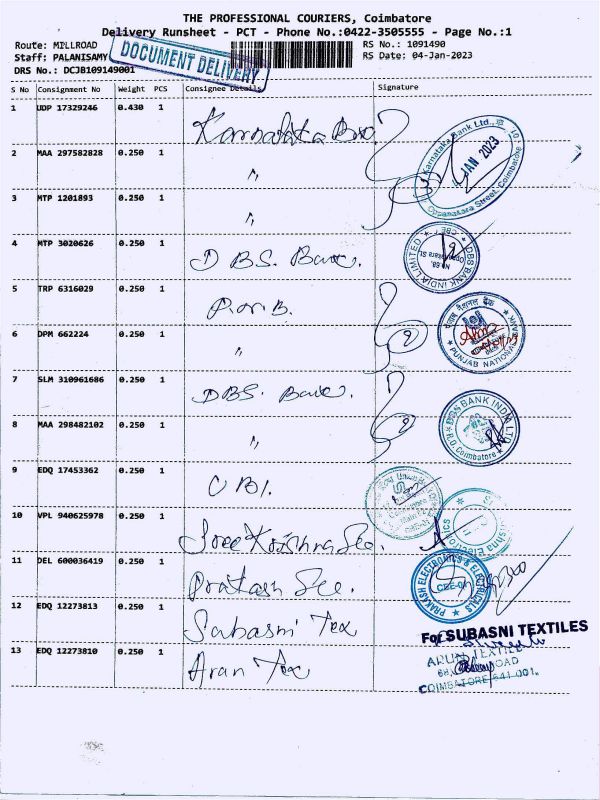 THE PROFESSIONAL COURIERS, Coimbatore
Delivery Runsheet - PCT - Phone No.:0422-3505555 - Page No.:1
Route: MILLROAD
RS No.: 1091490
Staff: PALANISAMY
RS Date: 04-Jan-2023
DRS No.: DCJB109149001
DOCUMENT DELIVERY
S No Consignment No Weight PCS Consignee Details Signature
1 UDP 17329246 0.430 1 Karnataka Ban
2 MAA 297582828 0.250 1 "
Karnataka Bank Ltd.,
JAN 2023
Oppanakara Street, Coimbatore
3 MTP 1201893 0.250 1 "
4 MTP 3020626 0.250 1 DBS. Bank.
DBS BANK INDIA LIMITED
5 TRP 6316029 0.250 1 P.N.B.
पंजाब नैशनल बैंक
PUNJAB NATIONAL BANK
6 DPM 662224 0.250 1 "
7 SLM 310961686 0.250 1 DBS. Bank.
8 MAA 298482102 0.250 1 "
DBS BANK INDIA LTD
R.O. Coimbatore
9 EDQ 17453362 0.250 1 UBI.
10 VPL 940625978 0.250 1 Sree Krishna Ele.
11 DEL 600036419 0.250 1 Prakash Ele.
PRAKASH ELECTRONICS & ELECTRICALS
12 EDQ 12273813 0.250 1 Subasni Tex
For SUBASNI TEXTILES
13 EDQ 12273810 0.250 1 Arun Tex
ARUN TEXTILE
COIMBATORE-641 001.